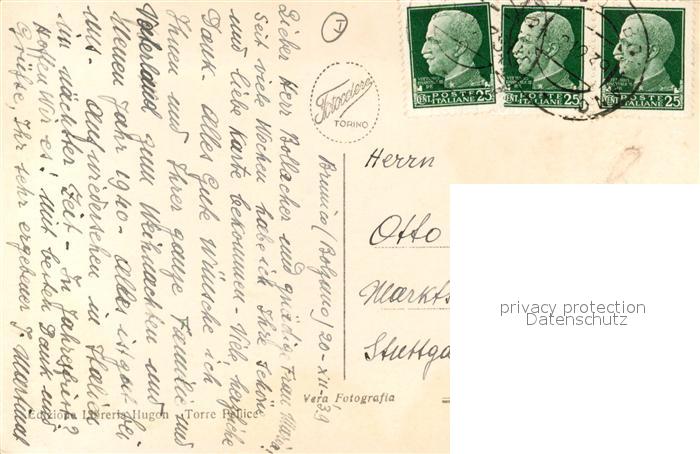 Brunico (Bolzano) 20-XII-39
Lieber Herr Bollacher und gnädige Frau Maria,
Seit viele Wochen habe ich Ihre Schöne
und liebe Karte bekommen - Viele herzliche
Dank. Alles Gute Wünsche ich
Ihnen und Ihrer ganze Familie und
Vaterland zum Weihnachten und
Neuen Jahr 1940 - alles ist gut bei
uns. Aufwiedersehen in Italien
in nächster Zeit - In Jahresfrist?
Hoffen Wir es! mit besten Dank und
Grüsse, Ihr sehr ergebener J.
Herrn
Otto
Markts
Stuttga
Fotocelere
TORINO
Vera Fotografia
Edizione Libreria Hugon - Torre Pellice
POSTE
ITALIANE
CENT. 25
POSTE
ITALIANE
CENT. 25
POSTE
ITALIANE
CENT. 25
privacy protection
Datenschutz